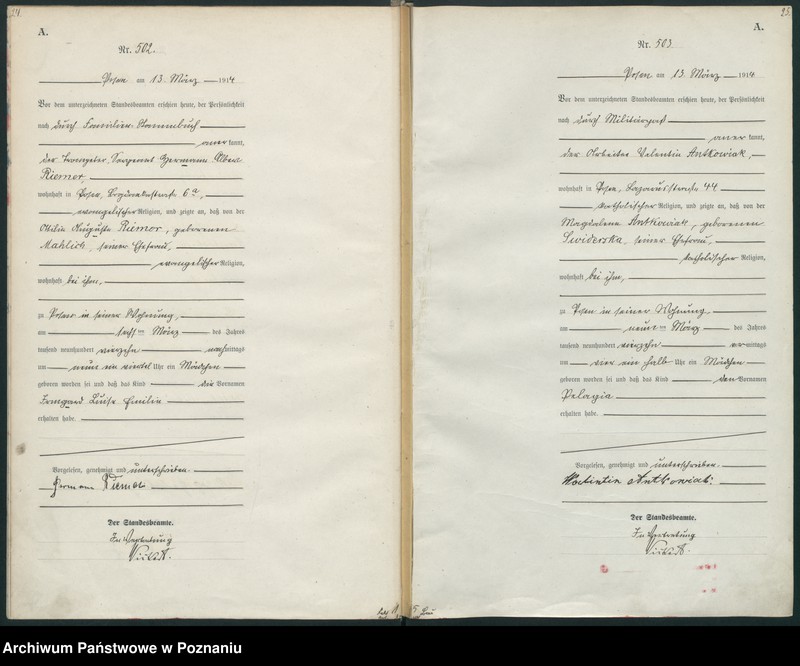 A.
Nr. 502.
Posen am 13. März 1914
Vor dem unterzeichneten Standesbeamten erschien heute, der Persönlichkeit
nach durch Familien-Stammbuch
anerkannt,
der Trompeter Sergeant Hermann Albert
Riemer,
wohnhaft in Posen, 6a,
evangelischer Religion, und zeigte an, daß von der
Ottilie Auguste Riemer, geborenen
Mahlich, seiner Ehefrau,
evangelischer Religion,
wohnhaft bei ihm,
zu Posen in seiner Wohnung,
am ten März des Jahres
tausend neunhundert vierzehn nachmittags
um neun ein viertel Uhr ein Mädchen
geboren worden sei und daß das Kind die Vornamen
Irmgard Luise Emilie
erhalten habe.
Vorgelesen, genehmigt und unterschrieben.
Hermann Riemer
Der Standesbeamte.
In Vertretung
A.
Nr. 503
Posen am 13. März 1914
Vor dem unterzeichneten Standesbeamten erschien heute, der Persönlichkeit
nach durch Militärpaß
anerkannt,
der Arbeiter Valentin Antkowiak,
wohnhaft in Posen, Lazarusstraße 44
katholischer Religion, und zeigte an, daß von der
Magdalena Antkowiak, geborenen
Swiderska, seiner Ehefrau,
katholischer Religion,
wohnhaft bei ihm,
zu Posen in seiner Wohnung
am neunten März des Jahres
tausend neunhundert vierzehn vormittags
um vier ein halb Uhr ein Mädchen
geboren worden sei und daß das Kind den Vornamen
Pelagia
erhalten habe.
Vorgelesen, genehmigt und unterschrieben.
Walentin Antkowiak.
Der Standesbeamte.
In Vertretung
Archiwum Państwowe w Poznaniu